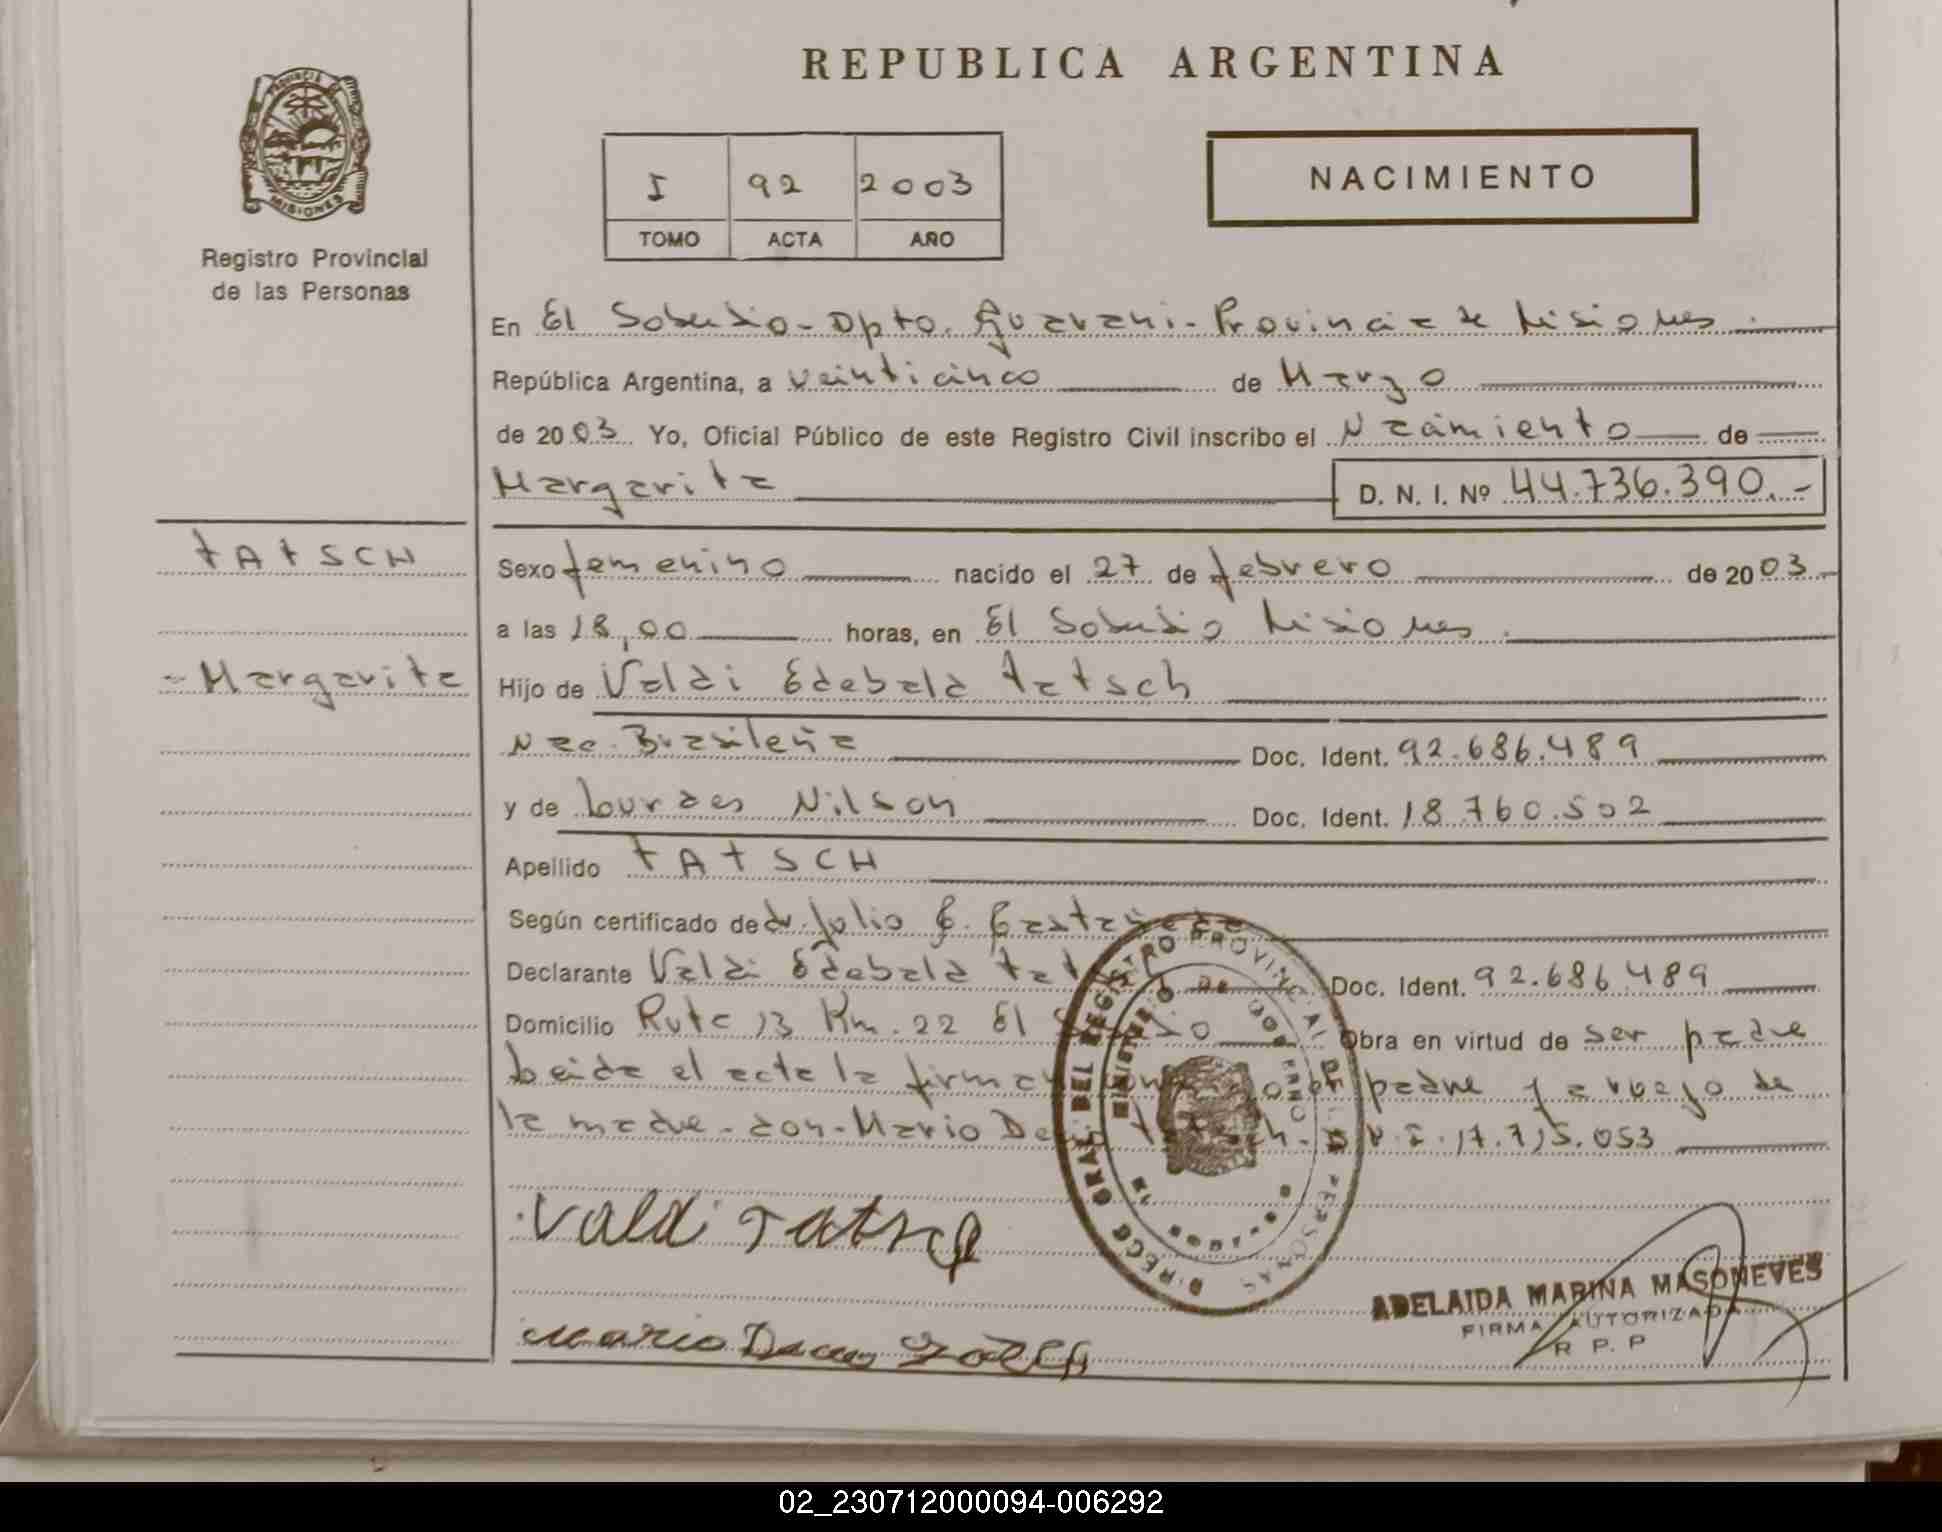 REPUBLICA ARGENTINA
PROVINCIA DE MISIONES
Registro Provincial
de las Personas
I 92 2003
TOMO ACTA AÑO
NACIMIENTO
En El Soberbio - Dpto. Guarani - Provincia de Misiones.
República Argentina, a veinticinco de Marzo
de 2003. Yo, Oficial Público de este Registro Civil inscribo el Nacimiento de
Margarita D. N. I. Nº 44.736.390.-
TATSCH
Sexo femenino nacido el 27 de febrero de 2003
a las 18,00 horas, en El Soberbio Misiones.
- Margarita
Hijo de Valdi Edebald Tatsch
Nac. Brasileña Doc. Ident. 92.686.489
y de Lourdes Nilson Doc. Ident. 18.760.502
Apellido TATSCH
Según certificado de dr. Julio
Declarante Valdi Edebald Doc. Ident. 92.686.489
Domicilio Ruta 13 Km. 22 El Obra en virtud de ser padre
Leida el acta la firman el padre y a ruego de
la madre - don - Mario Tatsch - D.N.I. 17.715.053
DIRECC. GRAL. DEL REGISTRO PROVINCIAL DE LAS PERSONAS
MINISTERIO DE GOBIERNO
Valdi Tatsch
Mario
ADELAIDA MARINA MASONEVES
FIRMA AUTORIZADA
R. P. P
02_230712000094-006292